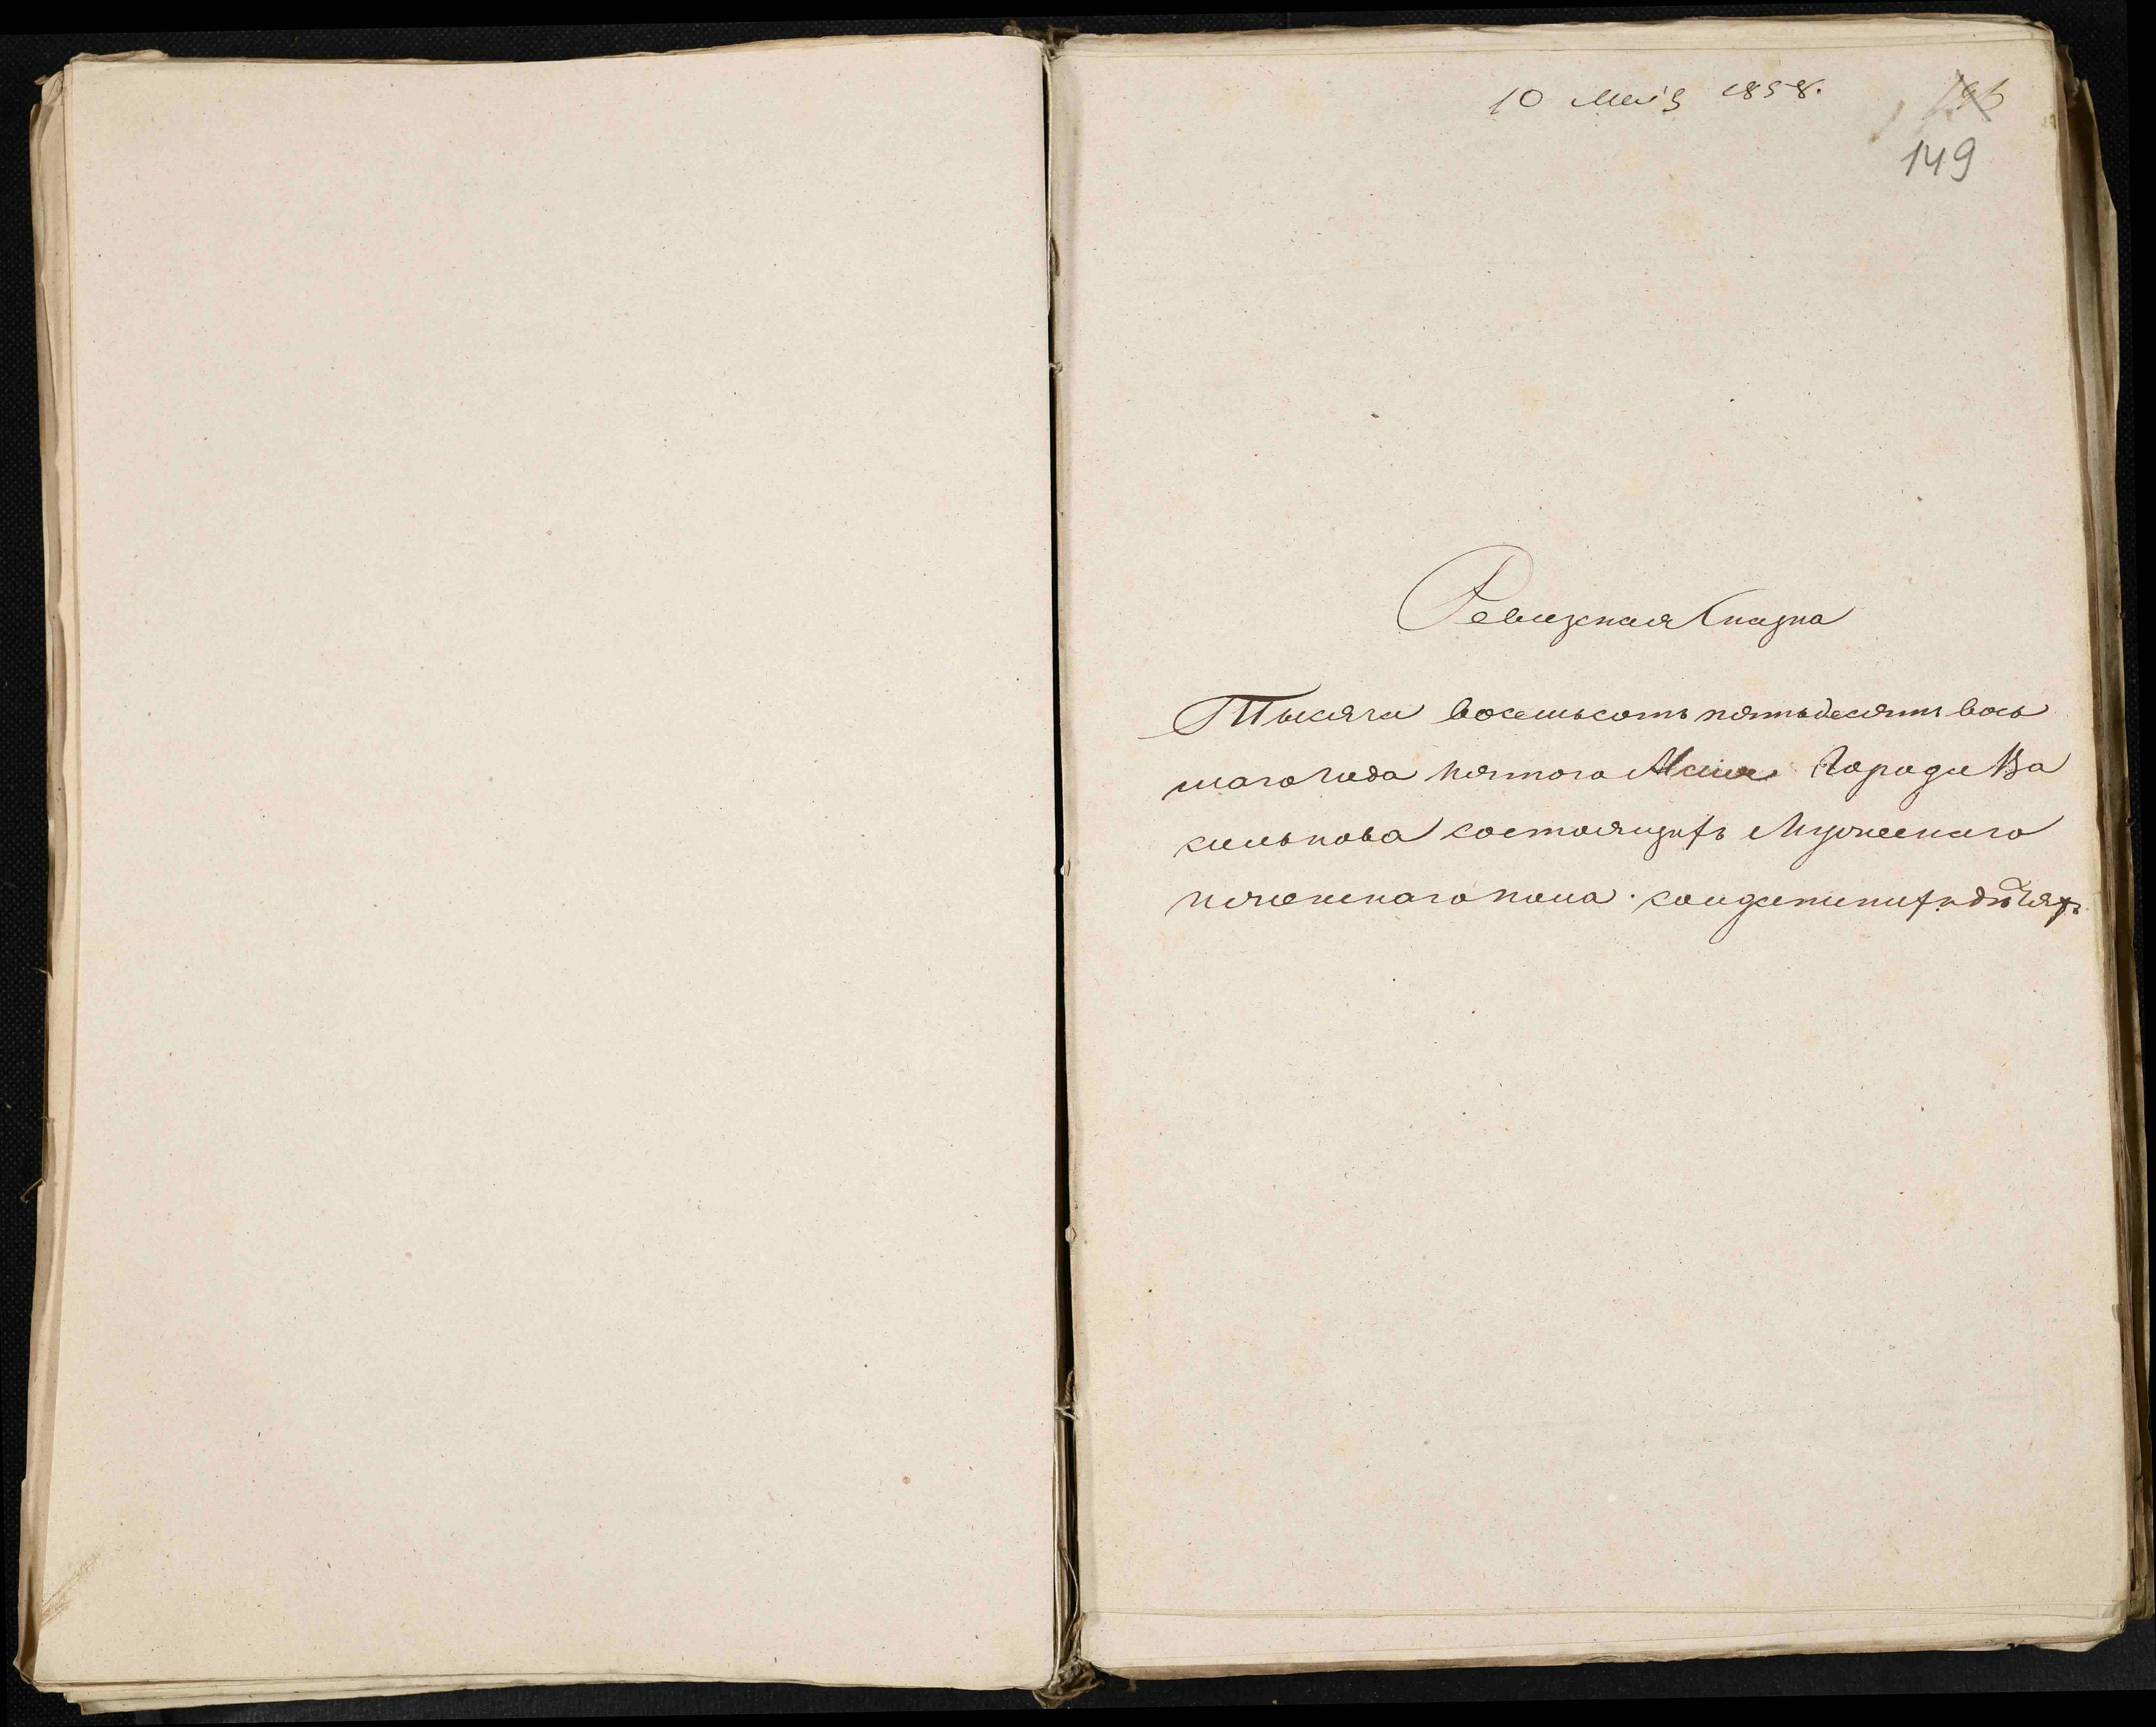 10 Маія 1858.
149
Ревизская Сказка
Тысяча восемьсотъ пятьдесятъ вось
маго года пятого Маия Города Ва
силькова состоящихъ Мужескаго
иженскаго пола. солдатскихъ дѣтяхъ